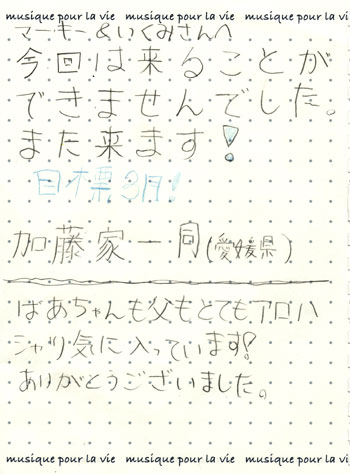 musique pour la vie musique pour la vie musique pour la vie
マーキー&いくみさんへ
今回は来ることが
できませんでした。
また来ます!
目標9月!
加藤家一同(愛媛県)
ばあちゃんも父もとてもアロハ
シャツ気に入っています!
ありがとうございました。
musique pour la vie musique pour la vie musique pour la vie